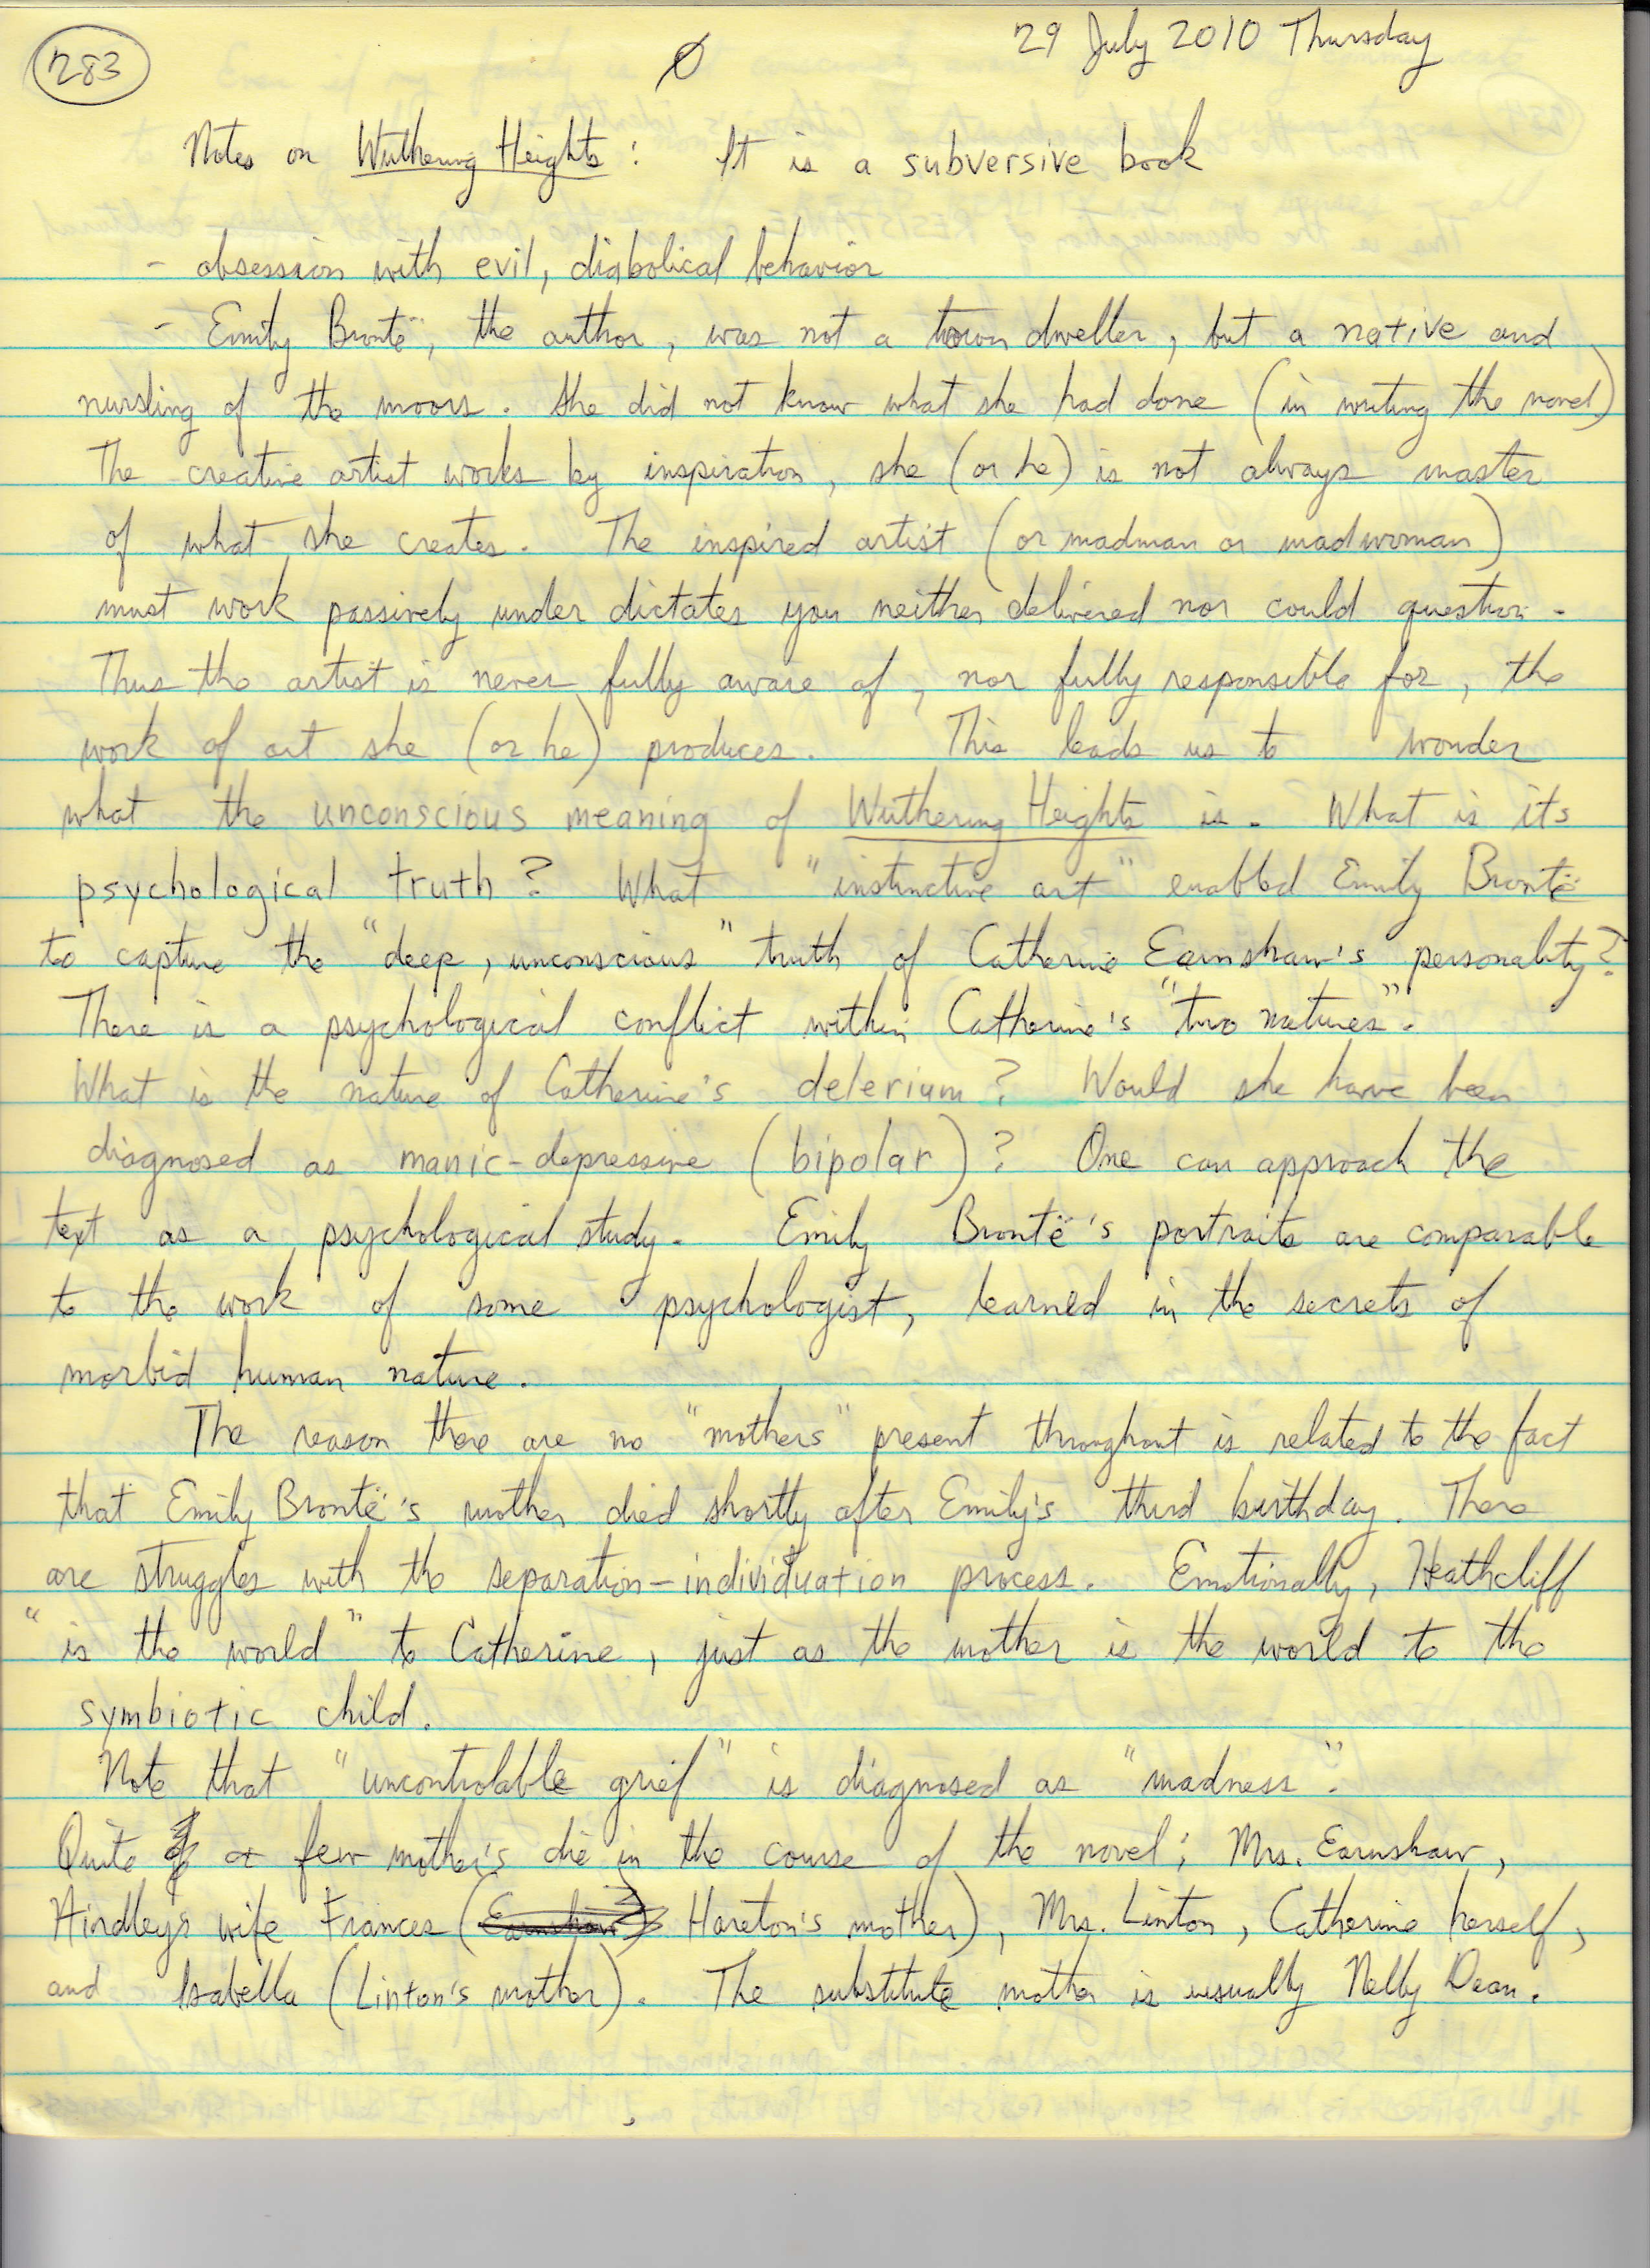 283
Ø
29 July 2010 Thursday
Notes on Wuthering Heights: It is a subversive book
- obsession with evil, diabolical behavior
- Emily Brontë, the author, was not a town dweller, but a native and
nursling of the moors. She did not know what she had done (in writing the novel)
The creative artist works by inspiration, she (or he) is not always master
of what she creates. The inspired artist (or madman or madwoman)
must work passively under dictates you neither delivered nor could question.
Thus the artist is never fully aware of, nor fully responsible for, the
work of art she (or he) produces. This leads us to wonder
what the unconscious meaning of Wuthering Heights is. What is its
psychological truth? What "instinctive art" enabled Emily Brontë
to capture the "deep, unconscious" truth of Catherine Earnshaw's personality?
There is a psychological conflict within Catherine's "two natures".
What is the nature of Catherine's delerium? Would she have been
diagnosed as manic-depressive (bipolar)? One can approach the
text as a psychological study. Emily Brontë's portraits are comparable
to the work of some psychologist, learned in the secrets of
morbid human nature.
The reason there are no "mothers" present throughout is related to the fact
that Emily Brontë's mother died shortly after Emily's third birthday. There
are struggles with the separation-individuation process. Emotionally, Heathcliff
"is the world" to Catherine, just as the mother is the world to the
symbiotic child.
Note that "uncontrolable grief" is diagnosed as "madness".
Quite a few mother's die in the course of the novel; Mrs. Earnshaw,
Hindley's wife Frances (Hareton's mother), Mrs. Linton, Catherine herself,
and Isabella (Linton's mother). The substitute mother is usually Nelly Dean.